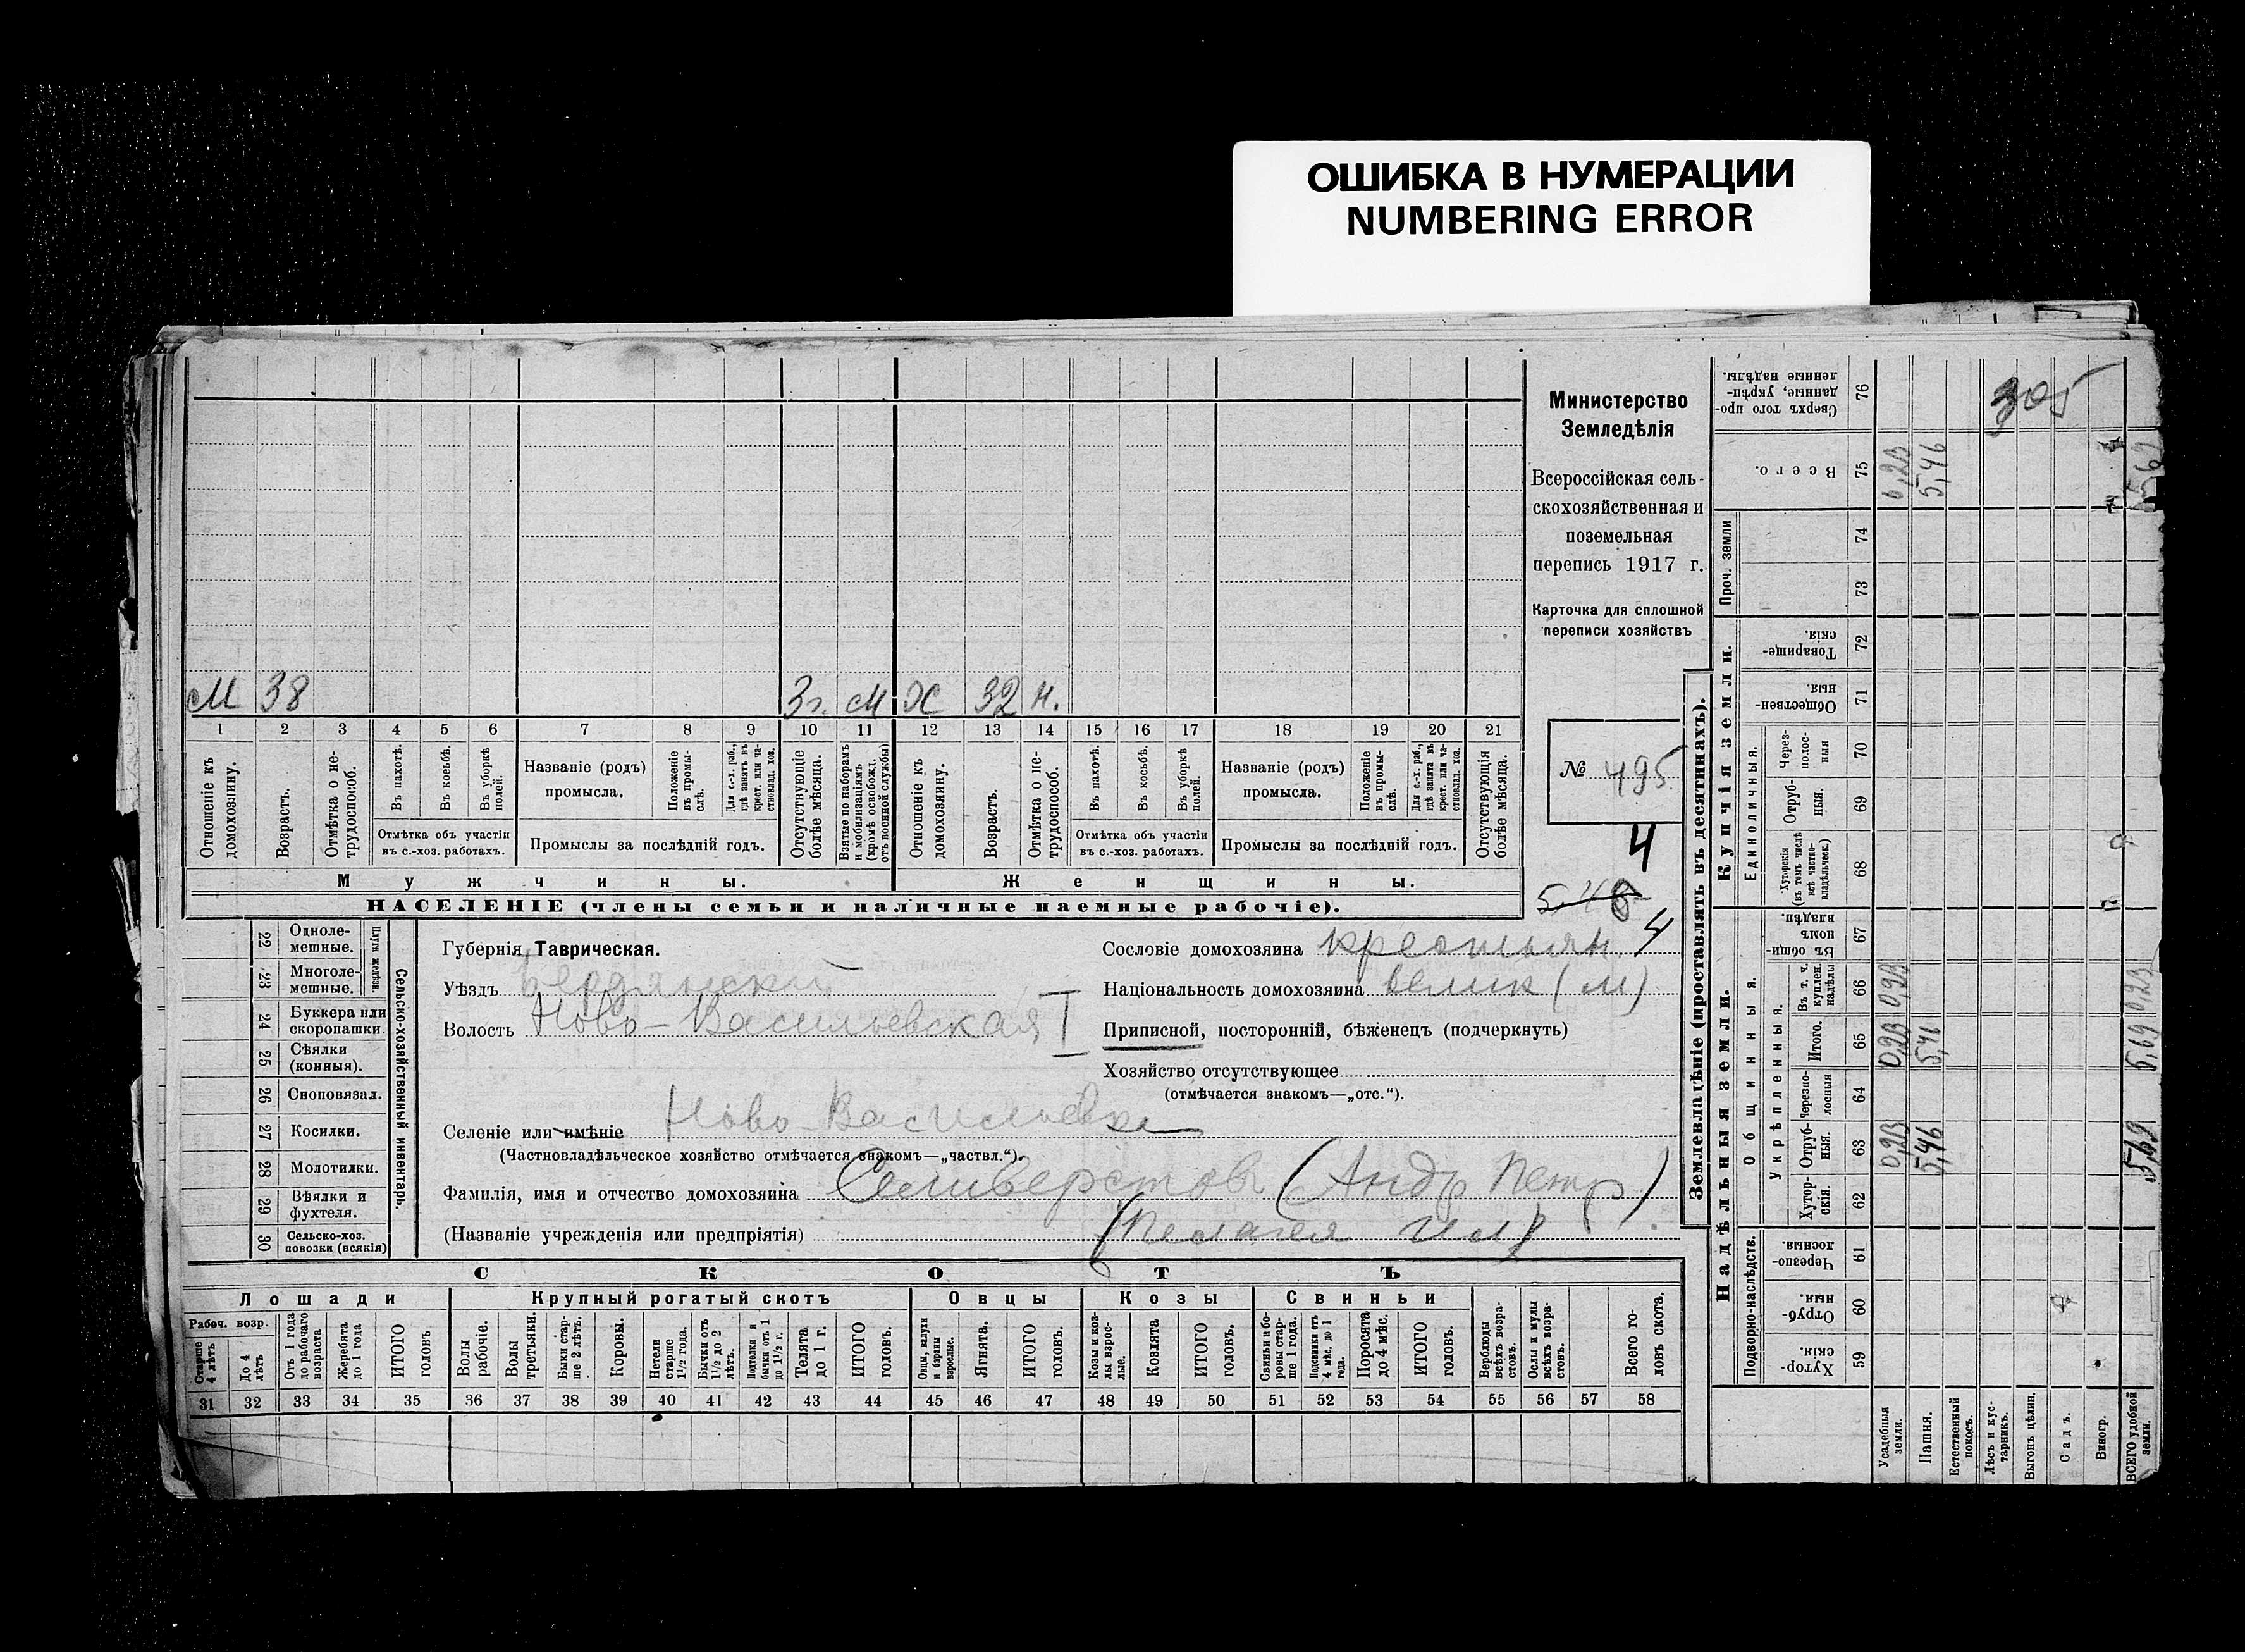 ОШИБКА В НУМЕРАЦИИ
NUMBERING ERROR
М 38 3г. М Ж 32 н.
1 2 3 4 5 6 7 8 9 10 11 12 13 14 15 16 17 18 19 20 21
Отношеніе къ домохозяину.
Возрастъ.
Отмѣтка о нетрудоспособ.
Въ пахотѣ.
Въ косьбѣ.
Въ уборкѣ полей.
Отмѣтка объ участіи въ с.-хоз. работахъ.
Названіе (родъ) промысла.
Положеніе въ промыслѣ.
Для с.-х. раб., гдѣ занятъ въ крест. или частновлад. хоз.
Промыслы за послѣдній годъ.
Отсутствующіе болѣе мѣсяца.
Взятые по наборамъ и мобилизаціямъ (кромѣ освобожд. отъ военной службы)
Отношеніе къ домохозяину.
Возрастъ.
Отмѣтка о нетрудоспособ.
Въ пахотѣ.
Въ косьбѣ.
Въ уборкѣ полей.
Отмѣтка объ участіи въ с.-хоз. работахъ.
Названіе (родъ) промысла.
Положеніе въ промыслѣ.
Для с.-х. раб., гдѣ занята въ крест. или частновлад. хоз.
Промыслы за послѣдній годъ.
Отсутствующія болѣе мѣсяца.
Мужчины. Женщины.
НАСЕЛЕНІЕ (члены семьи и наличные наемные рабочіе).
Министерство
Земледѣлія
Всероссійская сель-
скохозяйственная и
поземельная
перепись 1917 г.
Карточка для сплошной
переписи хозяйствъ
№ 495
4
4
Сельско-хозяйственный инвентарь.
Плуги желѣзн.
22 Одноле-мешные.
23 Многоле-мешные.
24 Буккера или скоропашки.
25 Сѣялки (конныя).
26 Сноповязал.
27 Косилки.
28 Молотилки.
29 Вѣялки и фухтеля.
30 Сельско-хоз. повозки (всякія)
Губернія Таврическая.
Уѣздъ Бердянскій
Волость Ново-Васильевская I
Сословіе домохозяина крестьян.
Національность домохозяина велик (м)
Приписной, посторонній, бѣженецъ (подчеркнуть)
Хозяйство отсутствующее
(отмѣчается знакомъ—„отс.“).
Селеніе или имѣніе Ново Васильевка
(Частновладѣльческое хозяйство отмѣчается знакомъ—„частвл.“).
Фамилія, имя и отчество домохозяина Селиверстовъ (Андр Петр)
(Названіе учрежденія или предпріятія) (Пелагея Ил)
СКОТЪ
Лошади Крупный рогатый скотъ Овцы Козы Свиньи
Рабоч. возр.
Старше 4 лѣтъ
До 4 лѣтъ
Отъ 1 года до рабочаго возраста
Жеребята до 1 года
ИТОГО головъ
Волы рабочіе.
Волы третьяки.
Быки старше 2 лѣтъ.
Коровы.
Нетели старше 1½ года.
Бычки отъ 1½ до 2 лѣтъ.
Подтелки и бычки отъ 1 до 1½ г.
Телята до 1 г.
ИТОГО головъ.
Овцы, валухи и бараны взрослые.
Ягнята.
ИТОГО головъ.
Козы и козлы взрослые.
Козлята
ИТОГО головъ.
Свиньи и боровы старше 1 года.
Подсвинки отъ 4 мѣс. до 1 года.
Поросята до 4 мѣс.
ИТОГО головъ.
Верблюды всѣхъ возрастовъ.
Ослы и мулы всѣхъ возрастовъ.
Всего головъ скота.
31 32 33 34 35 36 37 38 39 40 41 42 43 44 45 46 47 48 49 50 51 52 53 54 55 56 57 58
Землевладѣніе (проставлять въ десятинахъ).
Надѣльныя земли. Купчія земли. Проч. земли
Подворно-наслѣдств. Общинныя. Единоличныя.
Укрѣпленныя.
59 Хуторскія.
60 Отрубныя.
61 Черезполосныя.
62 Хуторскія.
63 Отрубныя. 5,46 5,69
64 Черезполосныя
65 Итого. 5,46 5,69
66 Въ т. ч. куплен. надѣлы
67 Въ общинномъ владѣн.
68 Хуторскія (въ томъ числѣ всѣ частновладѣльческ.)
69 Отрубныя.
70 Черезполосныя
71 Общественныя.
72 Товарищескія.
73
74
75 Всего. 5,46 5,69
76 Сверхъ того проданные, укрѣпленные надѣлы.
305
Усадебныя земли.
Пашня.
Естественный покосъ.
Лѣсъ и кустарникъ.
Выгонъ цѣлин.
Садъ.
Виногр.
ВСЕГО удобной земли.